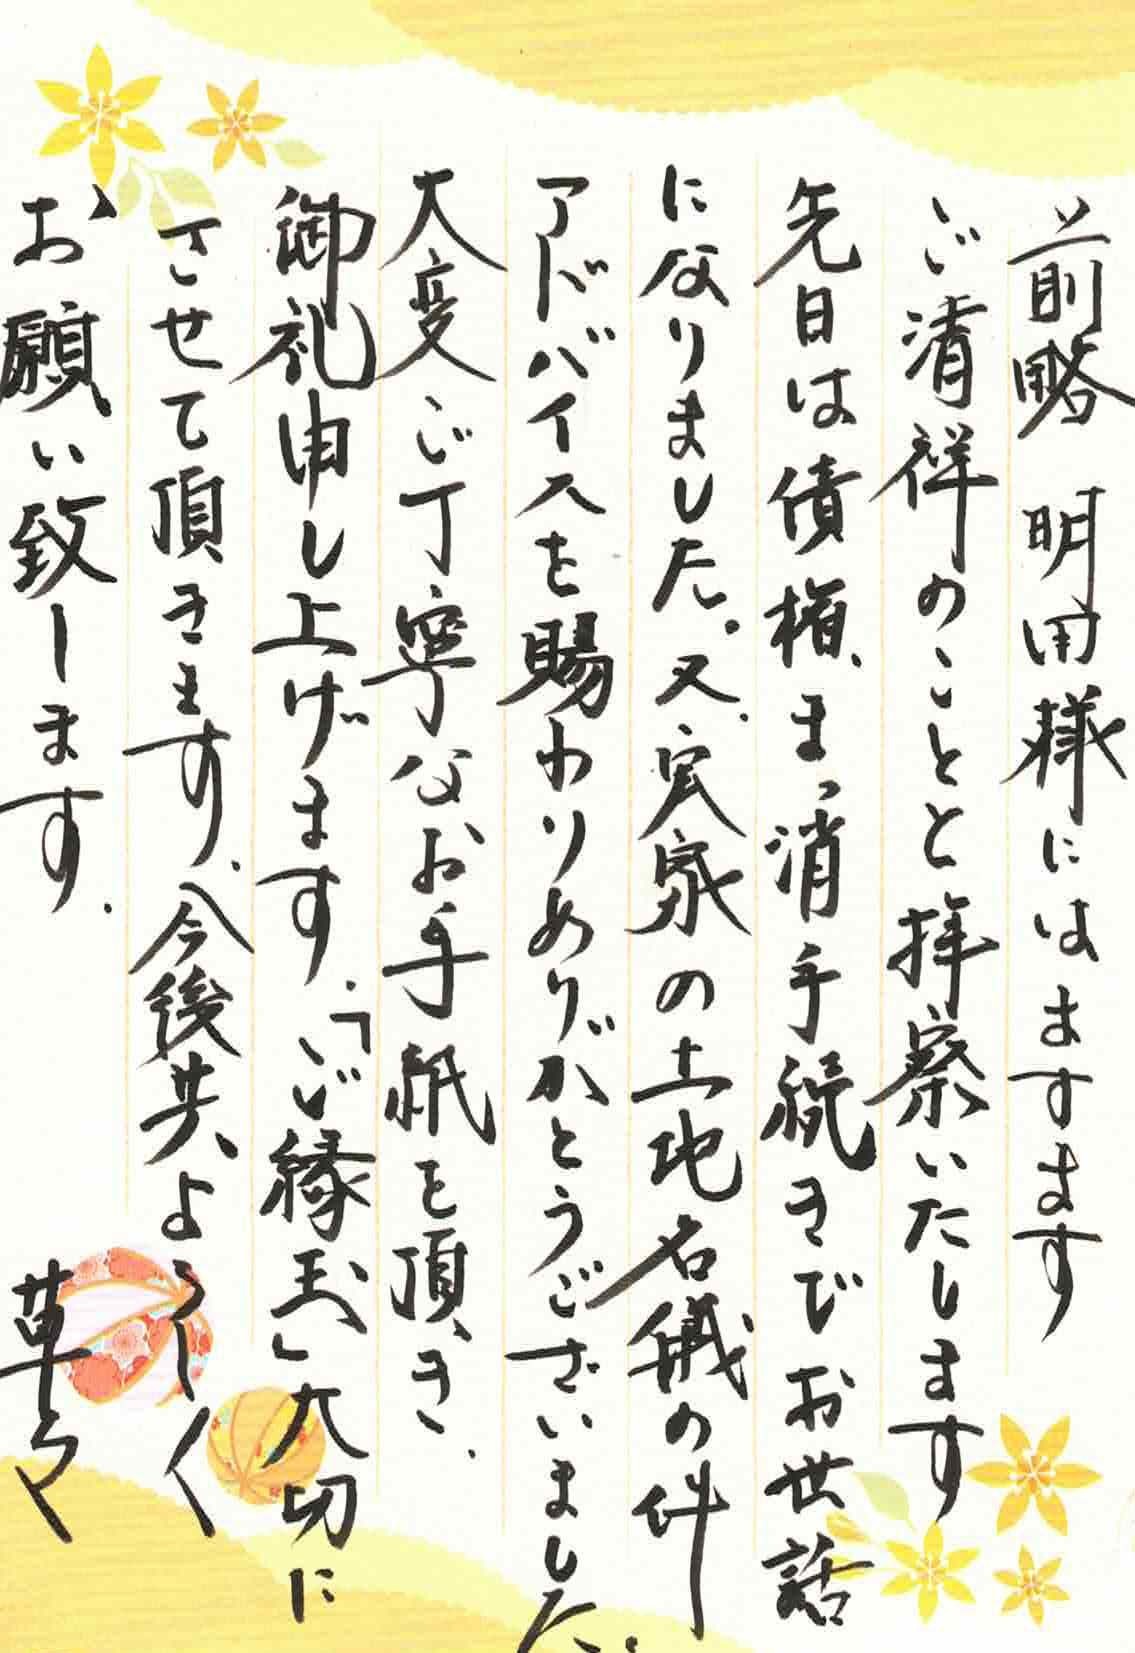 前略 明用様にはますます
ご清祥のことと拝察いたします
先日は債権、まっ消手続きでお世話
になりました。又、実家の土地名儀の件
アドバイスを賜わりありがとうございました。
大変ご丁寧なお手紙を頂き、
御礼申し上げます。「ご縁玉」大切に
させて頂きます。今後共よろしく
お願い致します。
草々